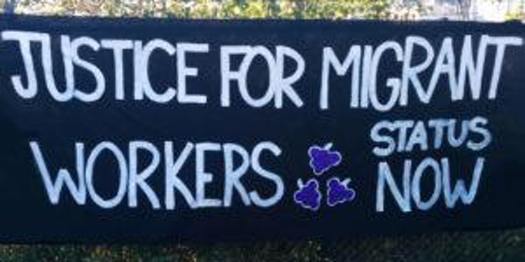 JUSTICE FOR MIGRANT
WORKERS
STATUS
NOW